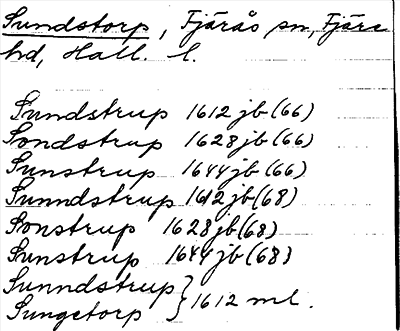 Sundstorp, Fjärås sn, Fjäre
hd, Hall. l.
Sundstrup 1612 jb (66)
Sondstrup 1628 jb (66)
Sunstrup 1644 jb (66)
Sunndstrup 1612 jb (68)
Sonstrup 1628 jb (68)
Sunstrup 1644 jb (68)
Sunndstrup } 1612 ml.
Sungetorp